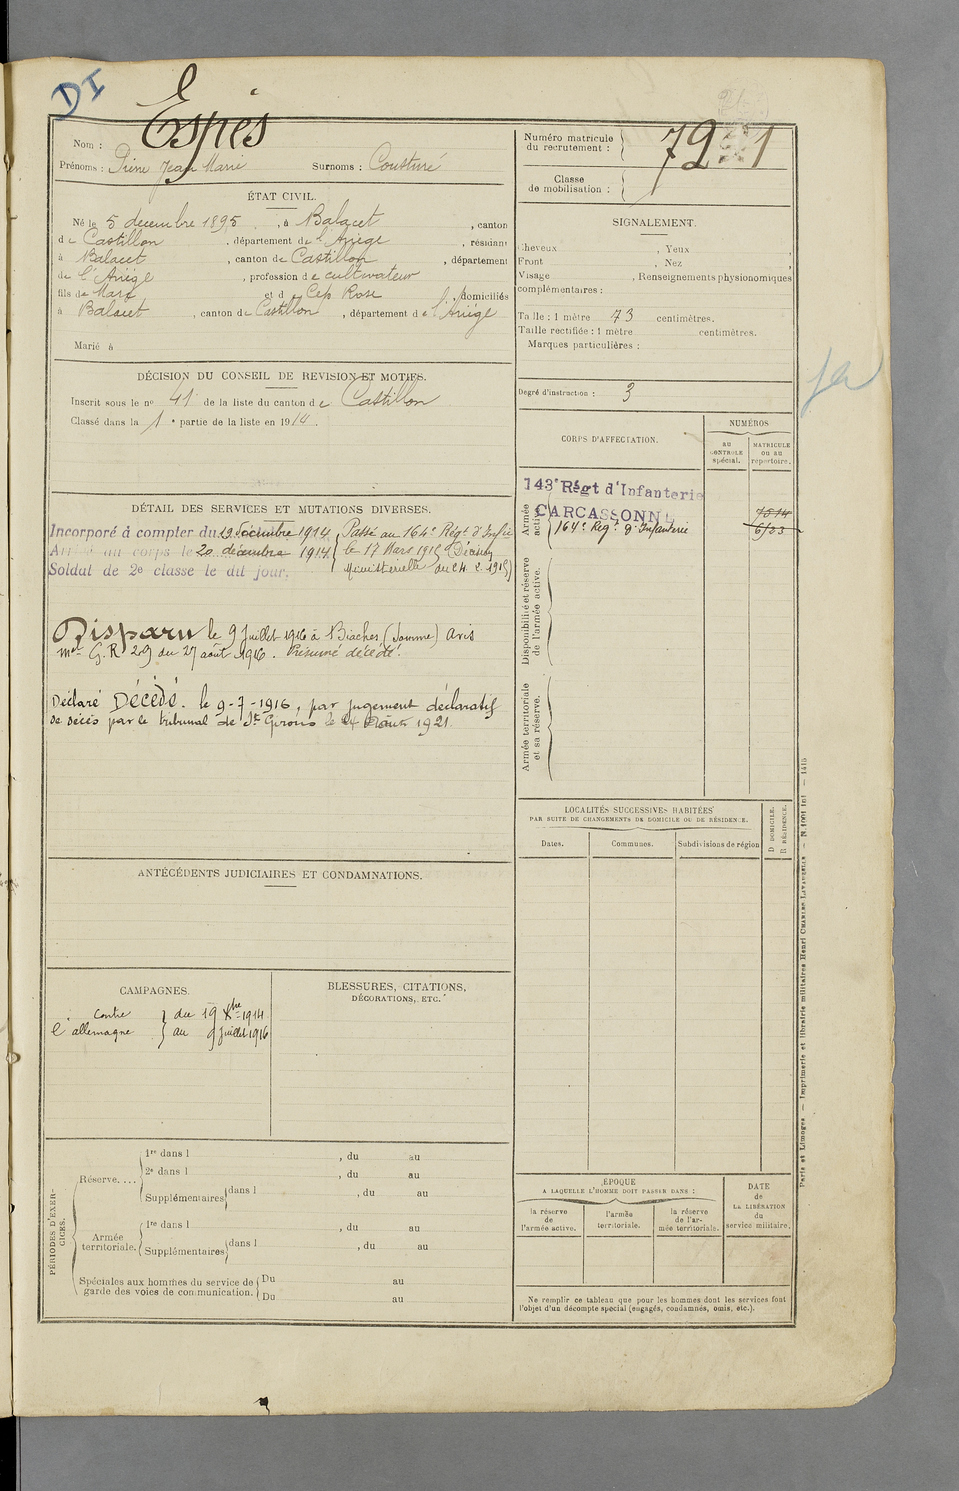 DI
Nom : Espès
Prénoms : Jean Marie Surnoms : Cousturé
ÉTAT CIVIL.
Né le 5 décembre 1895, à Balacet, canton
de Castillon, département de l'Ariège, résidant
à Balacet, canton de Castillon, département
de l'Ariège, profession de cultivateur
fils de Marc et d Cep Rose, domiciliés
à Balacet, canton de Castillon, département de l'Ariège
Marié à
DÉCISION DU CONSEIL DE REVISION ET MOTIFS.
Inscrit sous le nº 41 de la liste du canton de Castillon
Classé dans la 1e partie de la liste en 1914.
DÉTAIL DES SERVICES ET MUTATIONS DIVERSES.
Incorporé à compter du 19 décembre 1914
Arrivé au corps le 20 décembre 1914
Soldat de 2e classe le dit jour.
Passé au 164e Régt d'Infie
le 17 Mars 1915 (Décision
Ministerielle du 24. 2. 1915)
Disparu le 9 Juillet 1916 à Biaches (Somme) Avis
mel G.R 29 du 27 août 1916. Présumé décédé.
Déclaré Décédé. le 9-7-1916, par jugement déclaratif
de décès par le tribunal de St Girons le 24 1921.
ANTÉCÉDENTS JUDICIAIRES ET CONDAMNATIONS.
CAMPAGNES.
Contre
l'allemagne
du 19 Xbre 1914
au 9 Juillet 1916
BLESSURES, CITATIONS,
DÉCORATIONS, ETC.
PÉRIODES D'EXERCICES.
Réserve....
1re dans l , du au
2e dans l , du au
Supplémentaires dans l , du au
Armée
territoriale.
1re dans l , du au
Supplémentaires dans l , du au
Spéciales aux hommes du service de
garde des voies de communication.
Du au
Du au
Numéro matricule
du recrutement :
7291
Classe
de mobilisation :
SIGNALEMENT.
Cheveux , Yeux ,
Front , Nez ,
Visage , Renseignements physionomiques
complémentaires :
Taille : 1 mètre 73 centimètres.
Taille rectifiée : 1 mètre centimètres.
Marques particulières :
Degré d'instruction : 3
CORPS D'AFFECTATION.
NUMÉROS
AU
CONTROLE
spécial.
MATRICULE
OU AU
répertoire.
Armée
active.
143e Régt d'Infanterie
CARCASSONNE
164e Régt d'Infanterie
7514
Disponibilité et réserve
de l'armée active.
Armée territoriale
et sa réserve.
LOCALITÉS SUCCESSIVES HABITÉES
PAR SUITE DE CHANGEMENTS DE DOMICILE OU DE RÉSIDENCE.
D DOMICILE.
R RÉSIDENCE.
Dates.
Communes.
Subdivisions de région
ÉPOQUE
A LAQUELLE L'HOMME DOIT PASSER DANS :
la réserve
de
l'armée active.
l'armée
territoriale.
la réserve
de l'ar-
mée territoriale.
DATE
de
LA LIBÉRATION
du
service militaire.
Ne remplir ce tableau que pour les hommes dont les services font
l'objet d'un décompte spécial (engagés, condamnés, omis, etc.).
Paris et Limoges — Imprimerie et librairie militaires Henri CHARLES-LAVAUZELLE